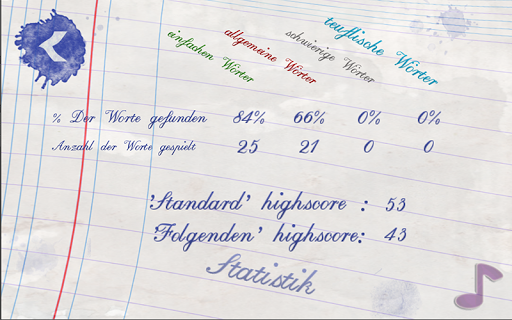 einfachen Wörter
allgemeine Wörter
schwierige Wörter
teuflische Wörter
% Der Worte gefunden 84% 66% 0% 0%
Anzahl der Worte gespielt 25 21 0 0
'Standard' highscore : 53
'Folgenden' highscore: 43
Statistik